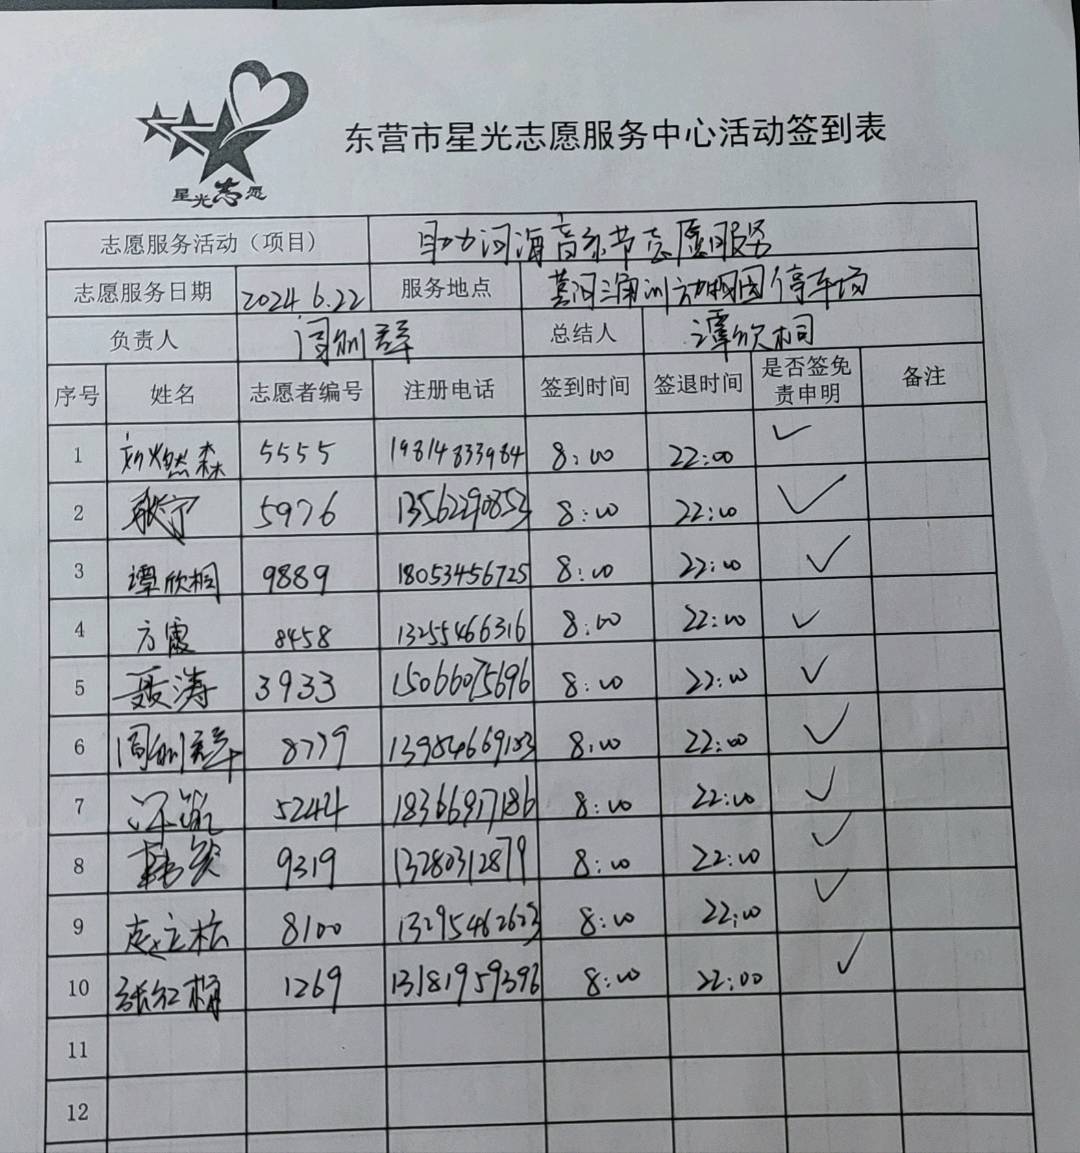 星光志愿
东营市星光志愿服务中心活动签到表
志愿服务活动（项目） 助力河海音乐节志愿服务
志愿服务日期 2024.6.22 服务地点 黄河三角洲动物园停车场
负责人 周训群 总结人 谭欣桐
序号 姓名 志愿者编号 注册电话 签到时间 签退时间 是否签免责申明 备注
1 刘燃森 5555 19814833984 8:00 22:00 ✓
2 耿宁 5976 13562290853 8:00 22:00 ✓
3 谭欣桐 9889 18053456725 8:00 22:00 ✓
4 方震 8458 13255466316 8:00 22:00 ✓
5 聂涛 3933 15066075696 8:00 22:00 ✓
6 周训群 8779 13984669183 8:00 22:00 ✓
7 5244 18366917186 8:00 22:00 ✓
8 韩 9319 13280312879 8:00 22:00 ✓
9 赵立松 8100 13295462623 8:00 22:00 ✓
10 张红梅 1269 13181959396 8:00 22:00 ✓
11
12